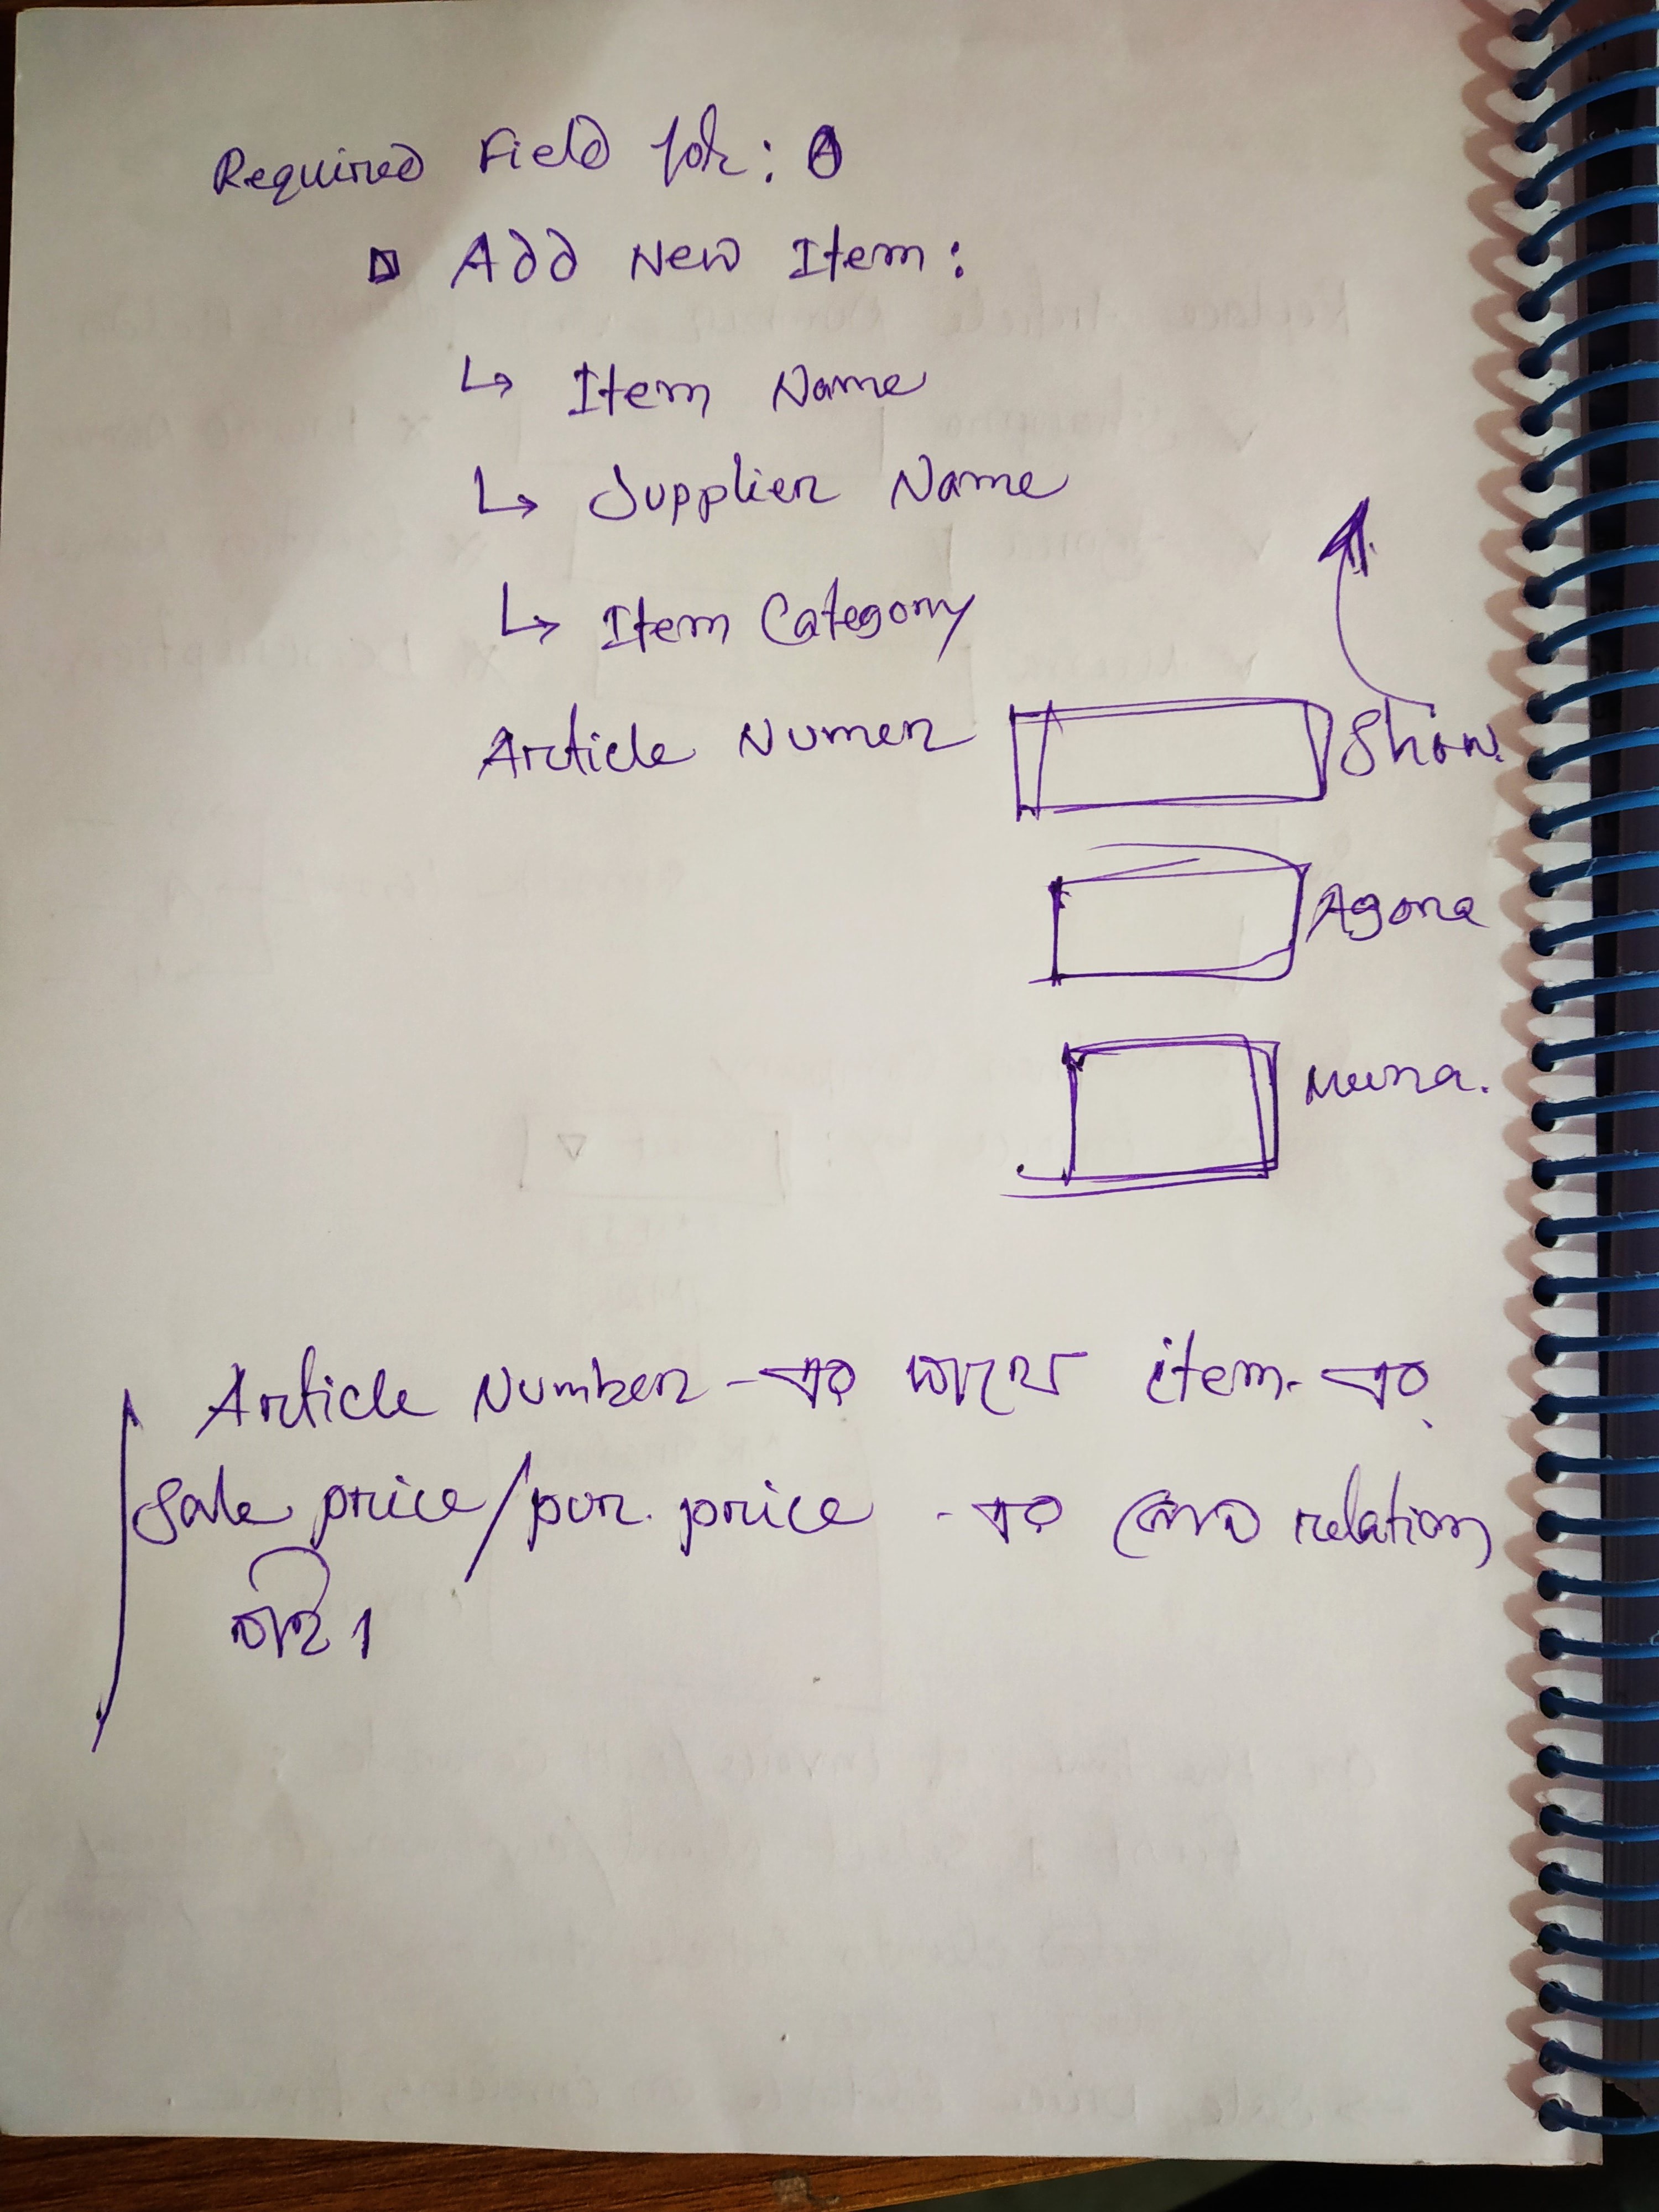 Required Field for:
Add New Item:
↳ Item Name
↳ Supplier Name
↳ Item Category
Article Numer
Show.
Agora
Meena.
Article Number -এর সাথে item-এর
Sale price/pur. price -এর কোন relation
নাই।